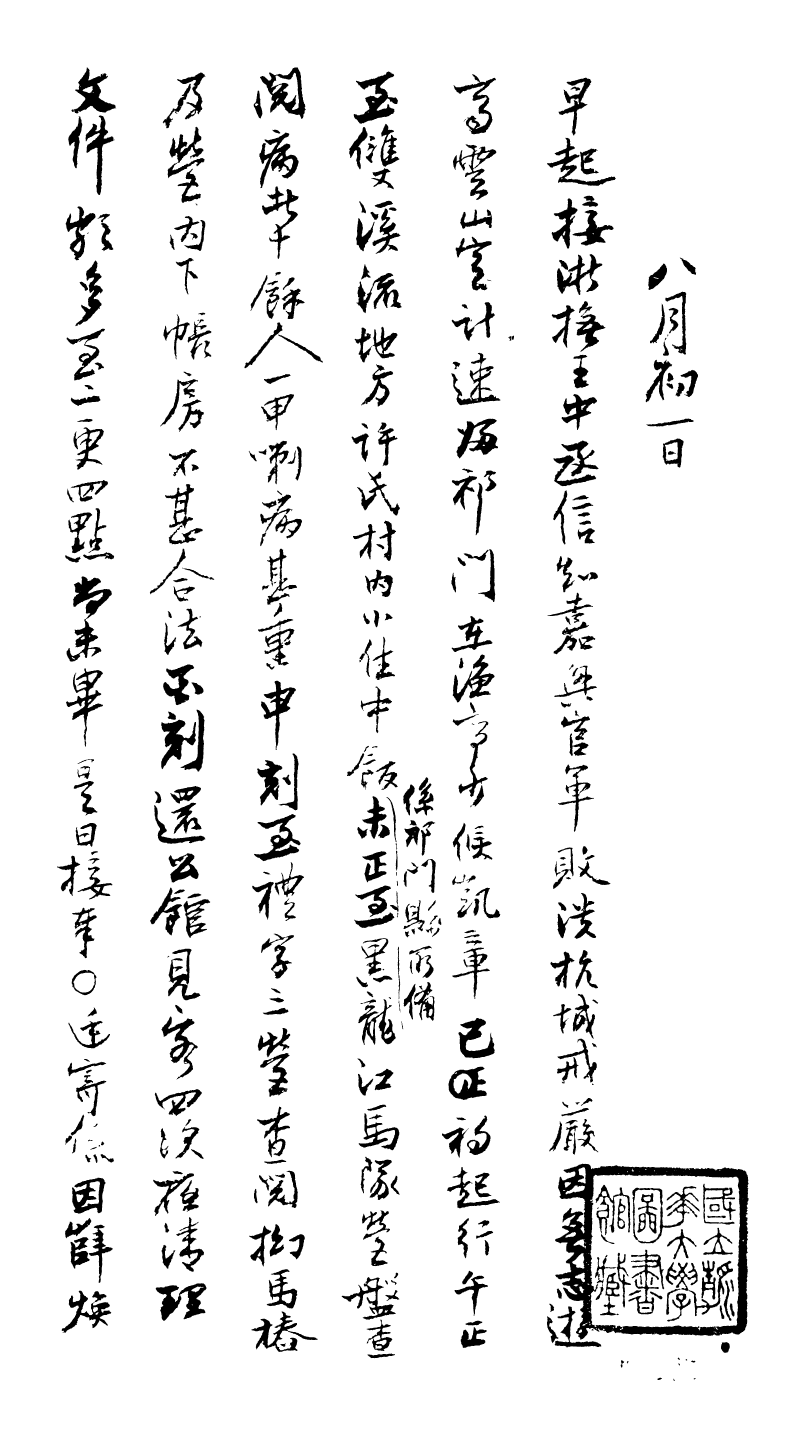 八月初一日
早起接浙撫王中丞信知嘉興官軍敗潰杭城戒嚴因無志遊
高雲山官計速歸祁門在漁亭少候凱章巳正初起行午正
至雙溪流地方許氏村內小住中飯
係祁門縣所備
未正至黑龍江馬隊營盤查
閱病者十餘人一甲喇病甚重申刻至禮字三營查閱拘馬樁
及營內下帳房不甚合法酉刻還公館見客四次夜清理
文件頗多至二更四點尚未畢是日接奉○廷寄係因薛煥
國立清華大學圖書館藏